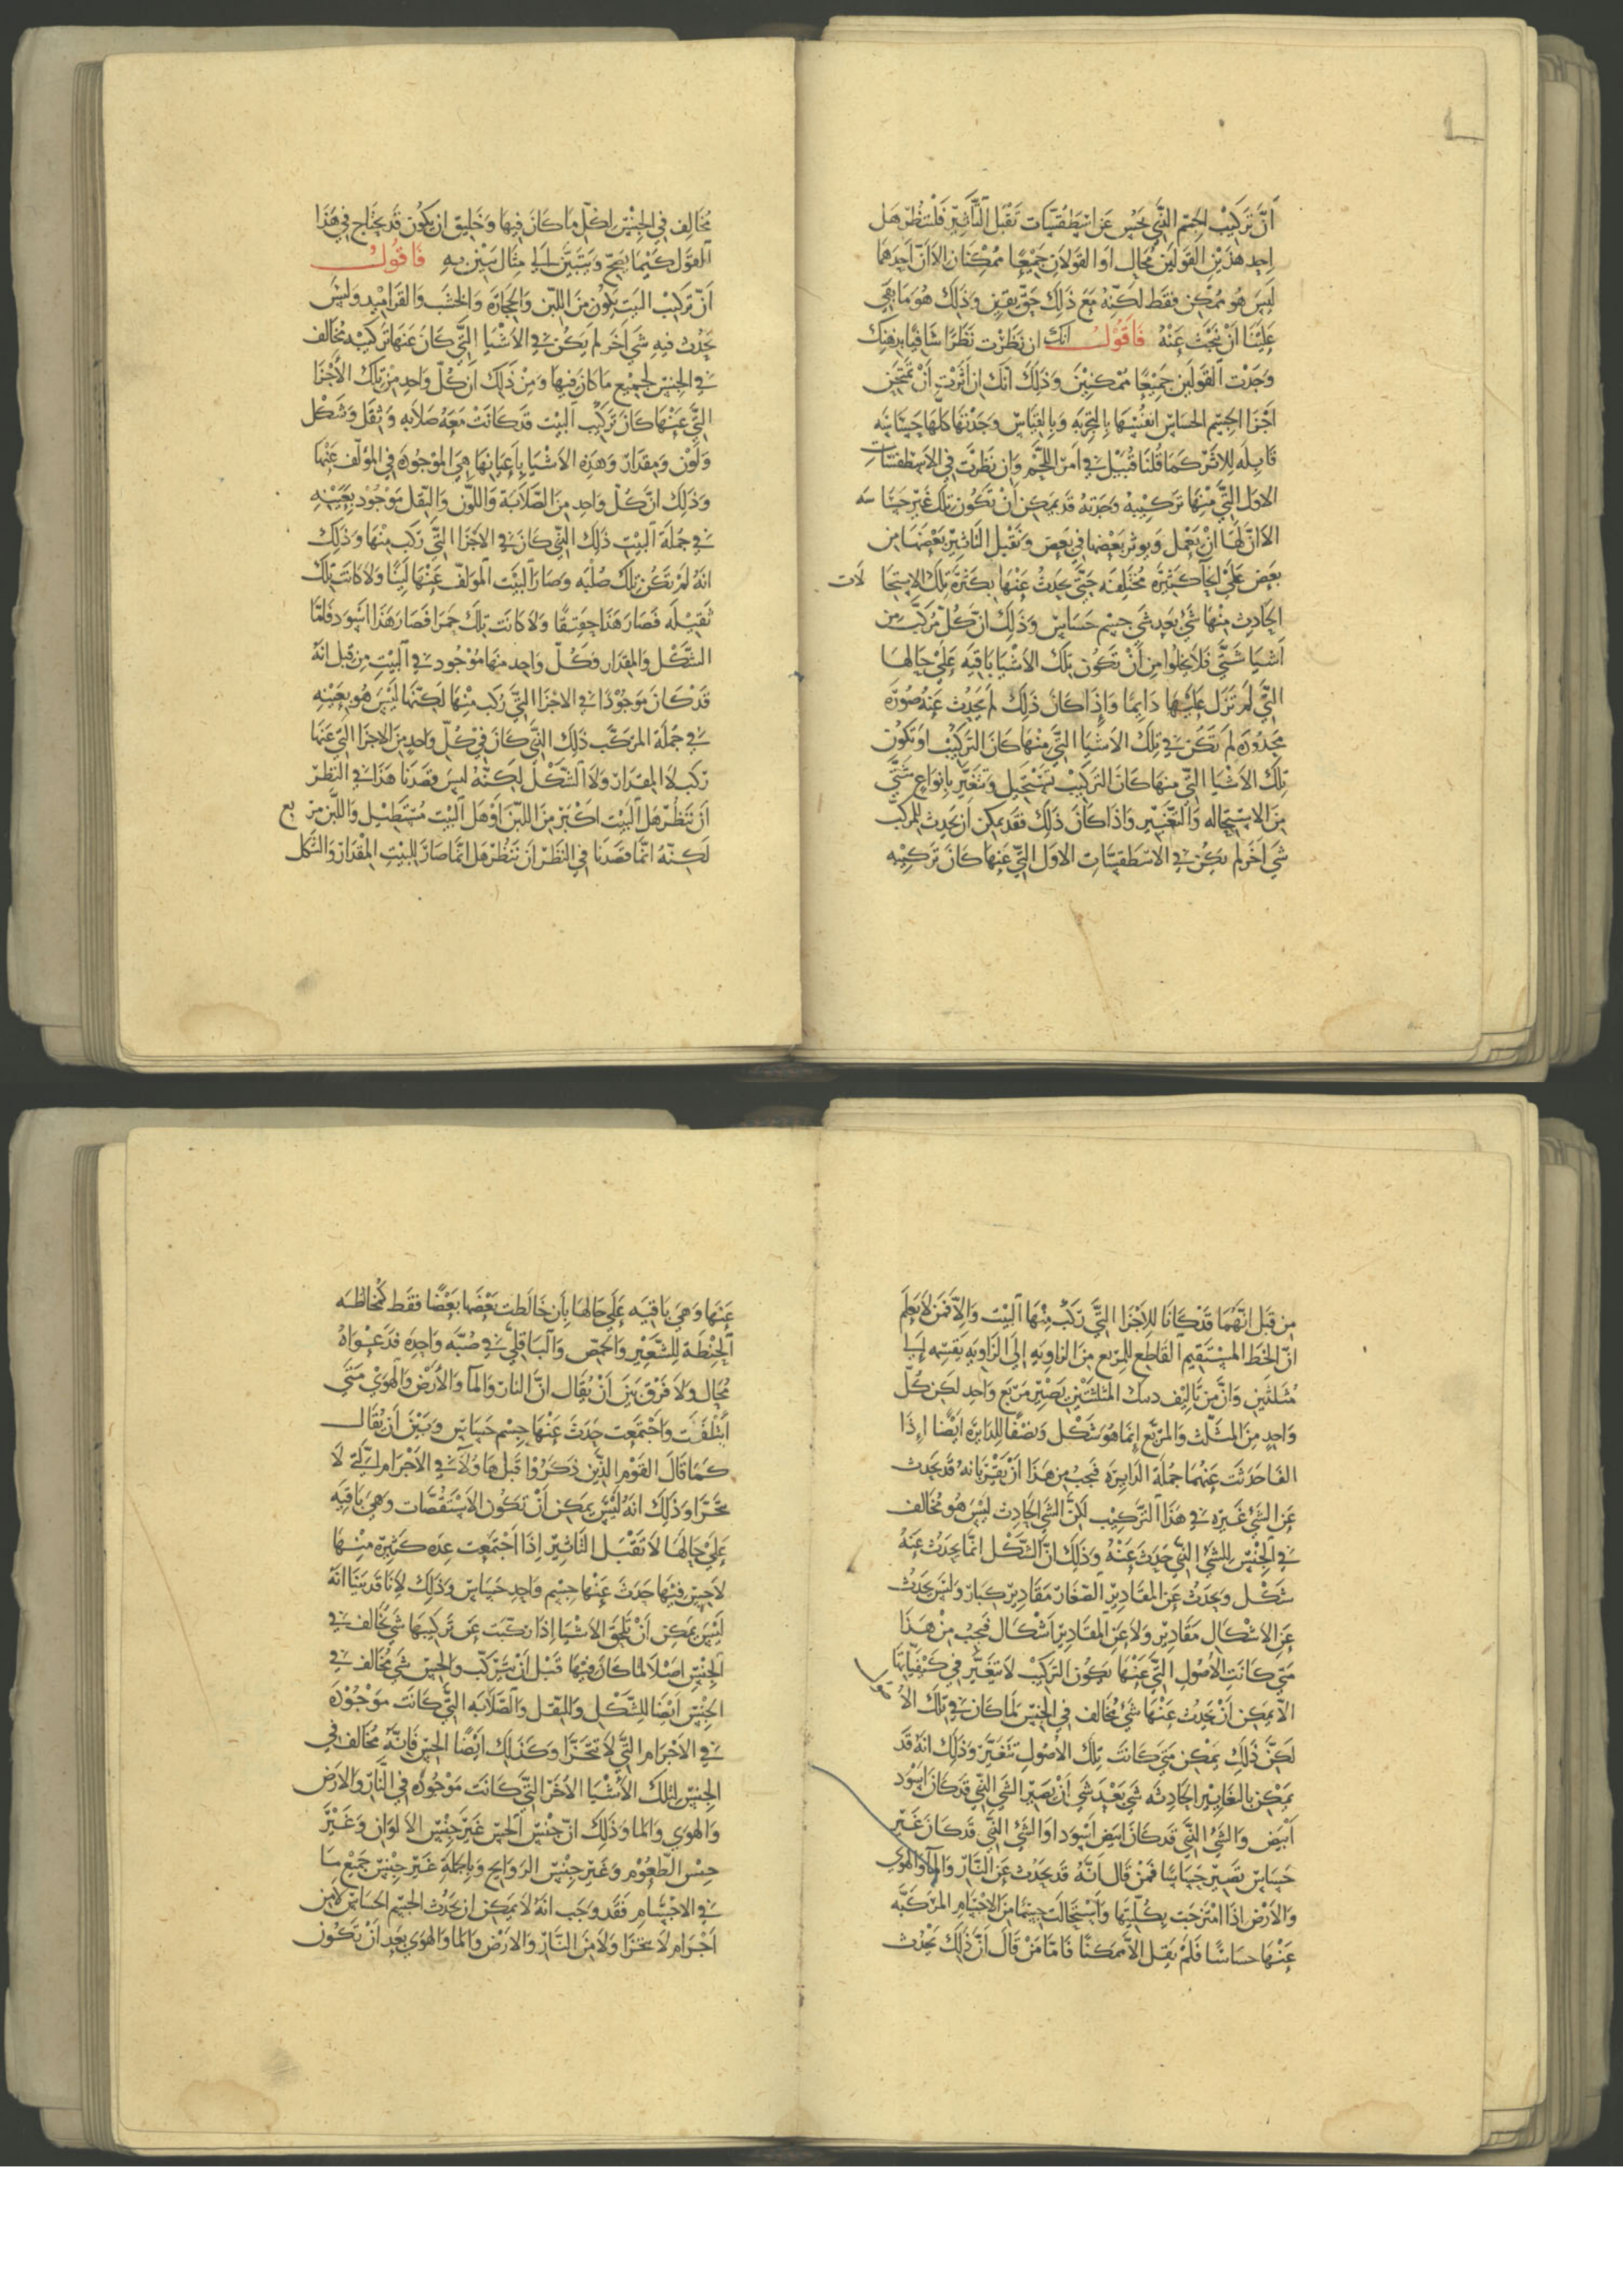 أن تركيب الجسم الذي يحس عن اسطقسات تقبل التأثير فلننظر هل
احد هذين القولين محال او القولان جميعا ممكنان الا ان احدهما
ليس هو ممكن فقط لكنه مع ذلك حق يقين وذلك هو ما بقي
علينا أن نبحث عنه فاقول انك ان نظرت نظرا شافيا بذهنك
وجدت القولين جميعا ممكنين وذلك أنك ان أثرت أن تمتحن
أجزا الجسم الحساس انفسها بالتجربه وبالقياس وجدتها كلها حساسه
قابله للاثر كما قلنا قبيل في امر اللحم وان نظرت في الاسطقسات
الاول التي منها تركيبه وجدته قد يمكن أن تكون تلك غير حساسه
الا ان لها ان يعمل ويوثر بعضها في بعض وتقبل التاثير بعضها من
بعض على انحا كثيره مختلفه حتى يحدث عنها بكثرة تلك الاستحالات
الحادث منها شي بعد شي جسم حساس وذلك ان كل مركب من
أشيا شتى فلا يخلوا من أن تكون تلك الأشيا باقيه على حالها
التي لم تزل عليها دايما وإذا كان ذلك لم يحدث عنه صورة
محدوده لم تكن في تلك الاشيا التي منها كان التركيب او تكون
تلك الاشيا التي منها كان التركيب تستحيل وتتغير بانواع شتى
من الاستحاله والتغيير واذا كان ذلك فقد يمكن أن يحدث للمركب
شي اخر لم يكن في الاسطقسات الاول التي عنها كان تركيبه
مخالف في الجنس لكل ما كان فيها وخليق ان يكون قد يحتاج في هذا
القول كيما يصح ويتبين الى مثال يبين به فاقول
أن تركيب البيت يكون من اللبن والحجارة والخشب والقراميد وليس
يحدث فيه شي أخر لم يكن في الأشيا التي كان عنها تركيبه مخالف
في الجنس لجميع ما كان فيها ومن ذلك ان كل واحد من تلك الأجزا
التي عنها كان تركيب البيت قد كانت معه صلابه وثقل وشكل
ولون ومقدار وهذه الاشيا بأعيانها هي الموجوده في المولف عنها
وذلك ان كل واحد من الصلابة واللون والثقل موجود بعينه
في جملة البيت ذلك الذي كان في الاجزا التي ركب منها وذلك
انه لم تكن تلك صلبه وصار البيت المولف عنها لينا ولا كانت تلك
ثقيله فصار هذا خفيفا ولا كانت تلك حمرا فصار هذا اسود فاما
الشكل والمقدار فكل واحد منها موجود في البيت من قبل انه
قد كان موجودا في الاجزا التي ركب منها لكنها ليس هو بعينه
في جملة المركب ذلك الذي كان في كل واحد من الاجزا التي عنها
ركب لا المقدار ولا الشكل لكنه ليس قصدنا هذا في النظر
أن ننظر هل البيت اكبر من اللبن أو هل البيت مستطيل واللبن مربع
لكنه انما قصدنا في النظر أن ننظر هل انما صار للبيت المقدار والشكل
من قبل انهما قد كانا للأجزا التي ركب منها البيت والا فمن لا يعلم
ان الخط المستقيم القاطع للمربع من الزاويه إلى الزاويه يقسمه إلى
مثلثين وان من تاليف المثلثين يصير مربع واحد لكن كل
واحد من المثلث والمربع إنما هو شكل ونصفا للدايرة أيضا اذا
الفا حدثت عنهما جملة الدايره فيجب من هذا أن نقر بانه قد يحدث
عن الشي غيره في هذا التركيب لكن الشي الحادث ليس هو مخالف
في الجنس للشي الذي حدث عنه وذلك ان الشكل انما يحدث عنه
شكل ويحدث عن المقادير الصغار مقادير كبار وليس يحدث
عن الاشكال مقادير ولا عن المقادير اشكال فيجب من هذا
متى كانت الأصول التي عنها يكون التركيب لا تتغير في كيفياتها
الا يمكن أن يحدث عنها شي مخالف في الجنس لما كان في تلك الاصول
لكن ذلك يمكن متى كانت تلك الأصول تتغير وذلك انه قد
يمكن بالتغايير الحادثه شي بعد شي أن يصير الشي الذي قد كان اسود
أبيض والشي الذي قد كان ابيض اسود او الشي الذي قد كان غير
حساس تصير حساسا فمن قال انه قد يحدث عن النار والما والهوى
والارض اذا امتزجت بكليتها واستحالت جسما من الاجسام المركبه
عنها حساسا فلم يقل الا ممكنا فاما من قال ان ذلك يحدث
عنها وهي باقيه على حالها بان خالطت بعضها بعضا فقط كمخالطه
الحنطة للشعير والحمص والباقلي في صبه واحده فدعواه
محال ولا فرق بين أن يقال ان النار والما والأرض والهوى متى
ايتلفت واجتمعت حدث عنها جسم حساس وبين أن يقال
كما قال القوم الذين ذكروا قبل هاولا في الأجرام التي لا
تتجزا وذلك انه ليس يمكن أن تكون الاستقصات وهي باقيه
على حالها لا تقبل التاثير إذا اجتمعت عده كثيره منها
لا حس فيها حدث عنها جسم واحد حساس وذلك لأنا قد بينا انه
ليس يمكن أن تلحق الاشيا إذا ركبت عن تركيبها شي مخالف في
الجنس اصلا لما كان فيها قبل أن تتركب والحس شي مخالف في
الجنس أيضا للشكل وللثقل والصلابه التي كانت موجوده
في الأجرام التي لا تتجزا وكذلك ايضا الحس فانه مخالف في
الجنس لتلك الأشيا الأخر التي كانت موجوده في النار والارض
والهوى والما وذلك ان جنس الحس غير جنس الالوان وغير
جنس الطعوم وغير جنس الروايح وبالجملة غير جنس جميع ما
في الاجسام فقد وجب انه لا يمكن ان يحدث الجسم الحساس لا من
أجرام لا تتجزا ولا من النار والارض والما والهوى بعد أن تكون